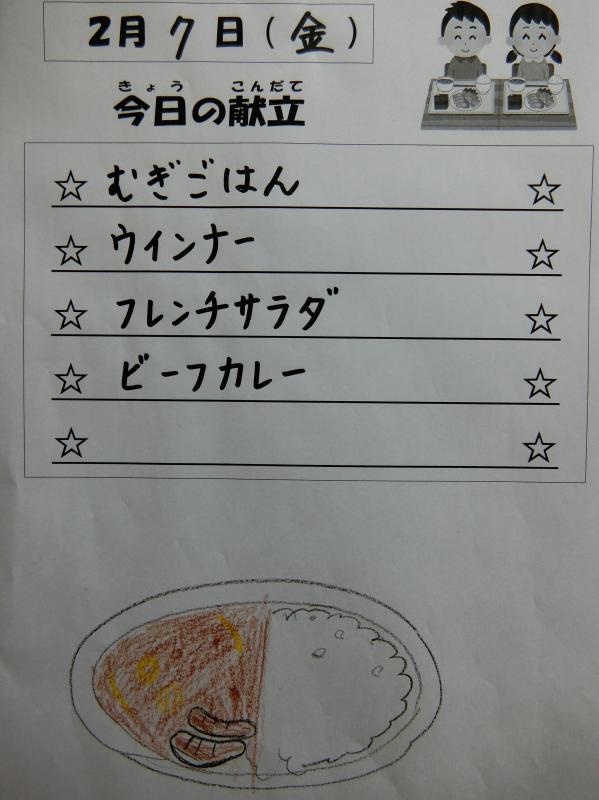 2月 7 日(金)
きょう こんだて
今日の献立
☆ むぎごはん ☆
☆ ウインナー ☆
☆ フレンチサラダ ☆
☆ ビーフカレー ☆
☆ ☆